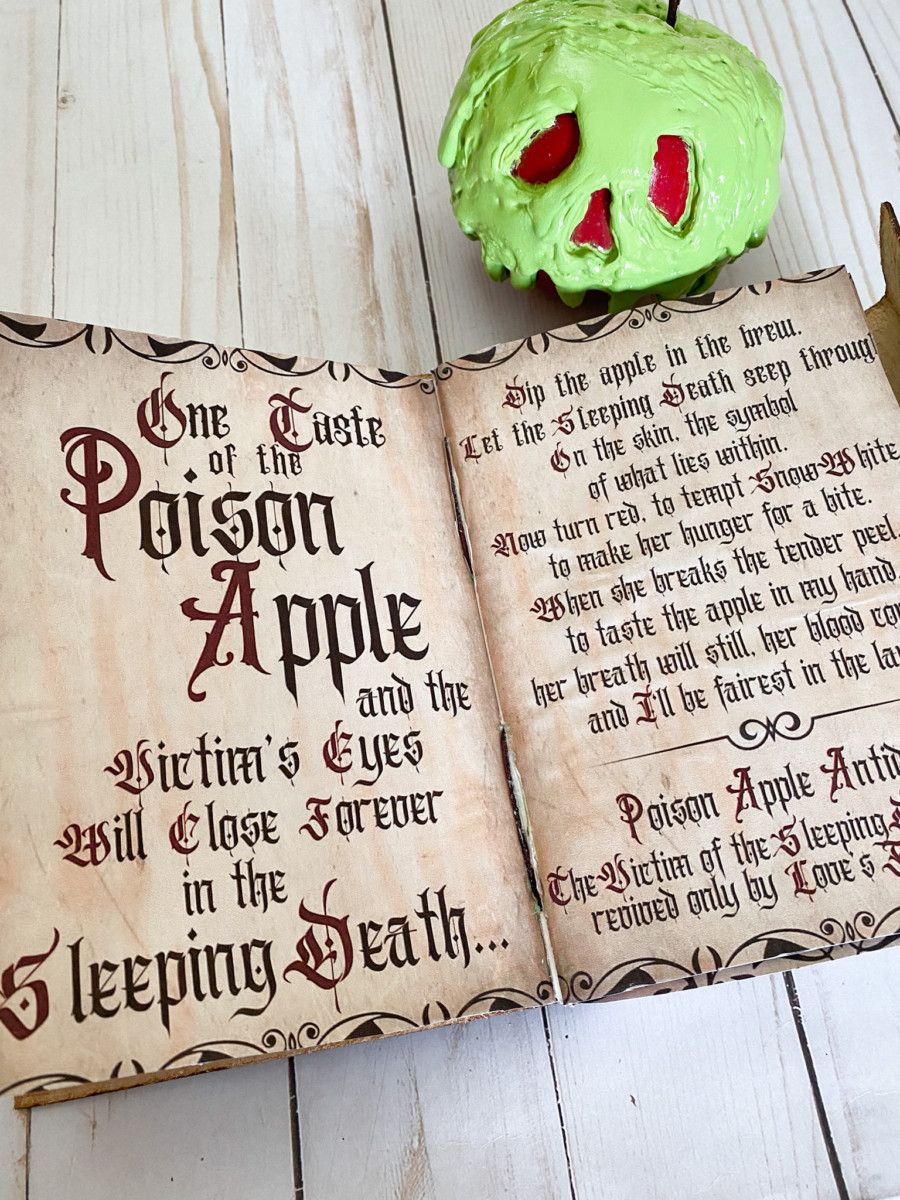 One Taste
of the
Poison
Apple
and the
Victim's Eyes
Will Close Forever
in the
Sleeping Death...
Dip the apple in the brew.
Let the Sleeping Death seep throug
On the skin, the symbol
of what lies within.
Now turn red, to tempt Snow White
to make her hunger for a bite.
When she breaks the tender peel,
to taste the apple in my hand,
her breath will still, her blood con
and I'll be fairest in the lan
Poison Apple Antid
The Victim of the Sleeping
revived only by Love's